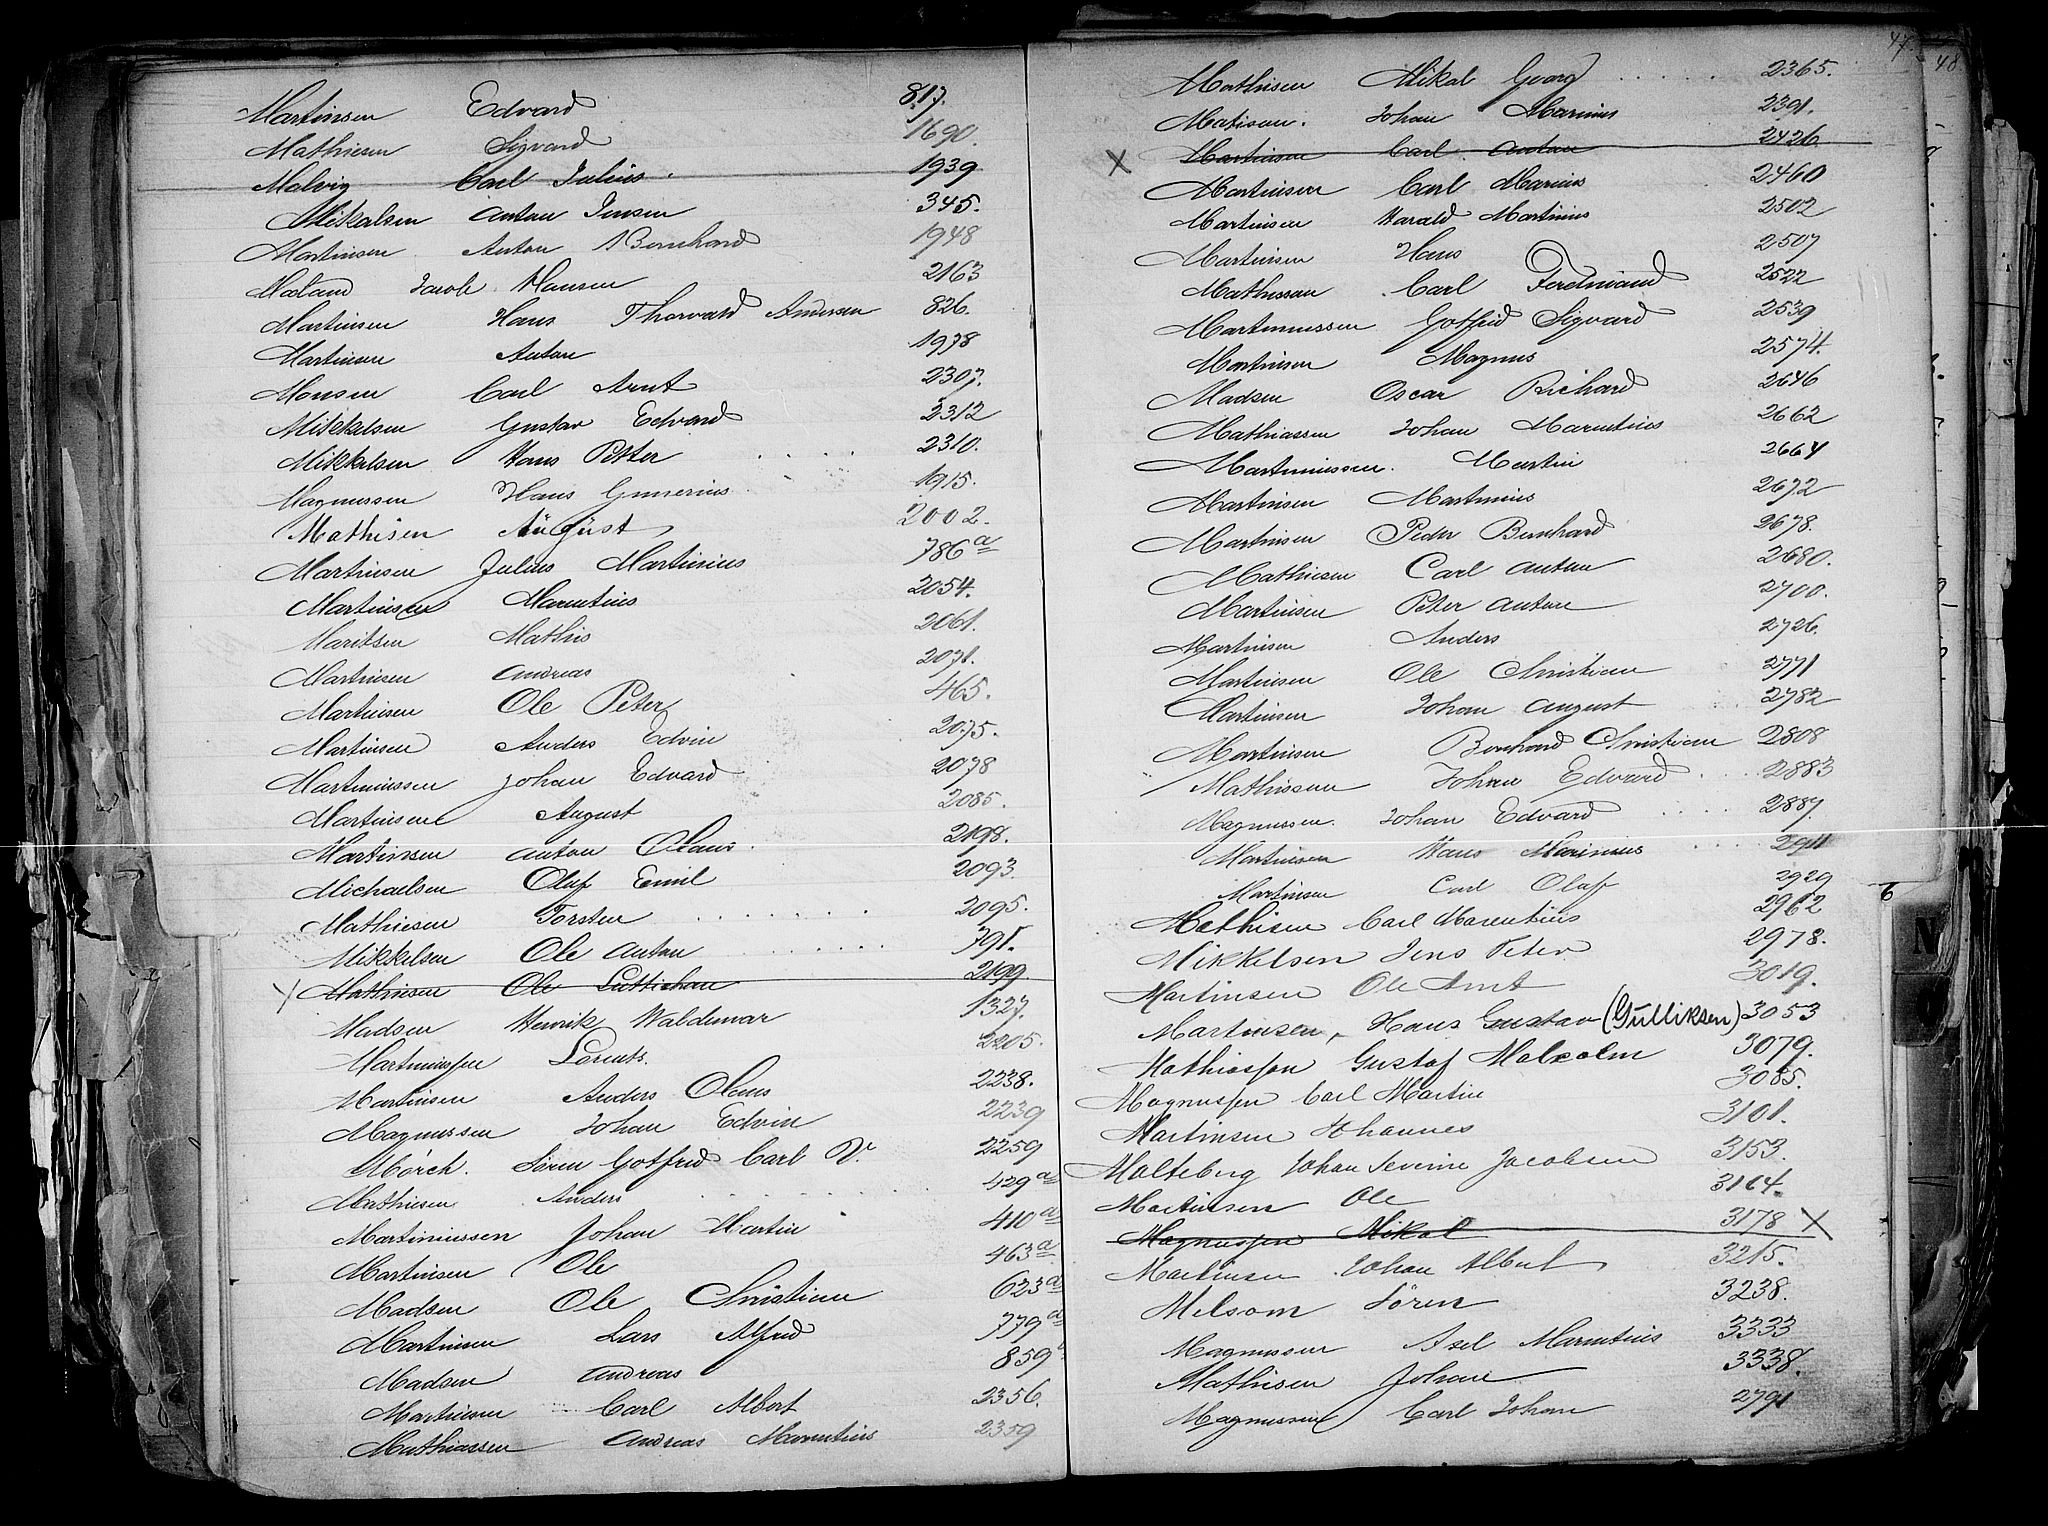 Martinsen Edvard 817.
Mathiesen Sigvard 1690.
Malvig Carl Julius. 1939
Mikalsen Anton Jensen 345.
Martinsen Anton Bernhard 1948
Jacob Hansen 2163
Martinsen Hans Thorvald Andersen 826.
Martinsen Anton 1978
Monsen Carl Arnt 2307.
Mikkelsen Gustav Edvard 2312
Mikkelsen Hans Petter . . . . 2310.
Magnussen Hans Gunerius 1915.
Mathisen August 2002.
Martinsen Julius Martinius 786 a
Martinsen Marentius 2054.
Maritsen Mathis 2061.
Martinsen Andreas 2071.
Martinsen Ole Peter 465.
Martinsen Anders Edvin 2075.
Martinussen Johan Edvard 2078
Martinsen August 2085.
Martinsen Anton Olaus. 2198.
Michaelsen Oluf Emil 2093.
Mathiesen Torsten . . . . . . . 2095.
Mikkelsen Ole Anton . . . . 791.
X Mathiesen Ole 2199.
Madsen Henrik Waldemar 1327.
Martinussen Lorents. 2205.
Martinsen Anders Olaus 2238.
Magnussen Johan Edvin 2239
Mörch. Sören Gotfred Carl V. 2259
Mathiesen Anders . . . . . . . 429 a
Martiniussen Johan Martin 410 a
Martinsen Ole 463 a
Madsen Ole Christian 623 a
Martinsen Lars Alfred 779 a
Madsen Andreas 859
Martinsen Carl Albert 2356.
Mathiassen Andreas Marentius 2359
47. 48
Mathisen Mikal Georg . . . . . 2365.
Matisen. Johan Marinius 2391.
X Martinsen Carl Anton 2426
Martinsen Carl Marius 2460
Martinsen Harald Martinius 2502
Martinsen Hans 2507
Mathissen Carl Ferdinand 2522
Martinussen Gotfred Sigvard 2539
Martinsen Magnus 2574.
Madsen Oscar Richard 2646
Mathiassen Johan Marentius 2662
Martiniussen. Martin 2664
Martinsen Martinius 2672
Martinsen Peder Bernhard 2678.
Mathiesen Carl Anton 2680.
Martinsen Peter Anton 2700.
Martinsen Anders 2726.
Martinsen Ole Christian 2771
Martinsen Johan August 2782
Martinsen Bernhard Christian 2808
Mathissen Johan Edvard . . . 2883
Magnussen. Johan Edvard . . . . 2887.
Martinsen Hans Marinius . . . . 2911
Martinsen Carl Oluf 2929
Mathisen Carl Marentius 2962
Mikkelsen Jens Peter 2978.
Martinsen Ole Arnt 3019.
Martinsen, Hans Gustav (Gulliksen) 3053
Mathiassen Gustaf Malcolm 3079.
Magnussen Carl Martin 3085.
Martinsen Johannes 3101.
Malteberg Johan Severin Jacobsen 3153.
Martinsen Ole 3164.
Magnussen Mikal 3178 X
Martinsen Johan Albert 3215.
Melsom Sören 3238.
Magnussen Axel Marentius 3333
Mathisen Johan 3338.
Magnussen Carl Johan 2791